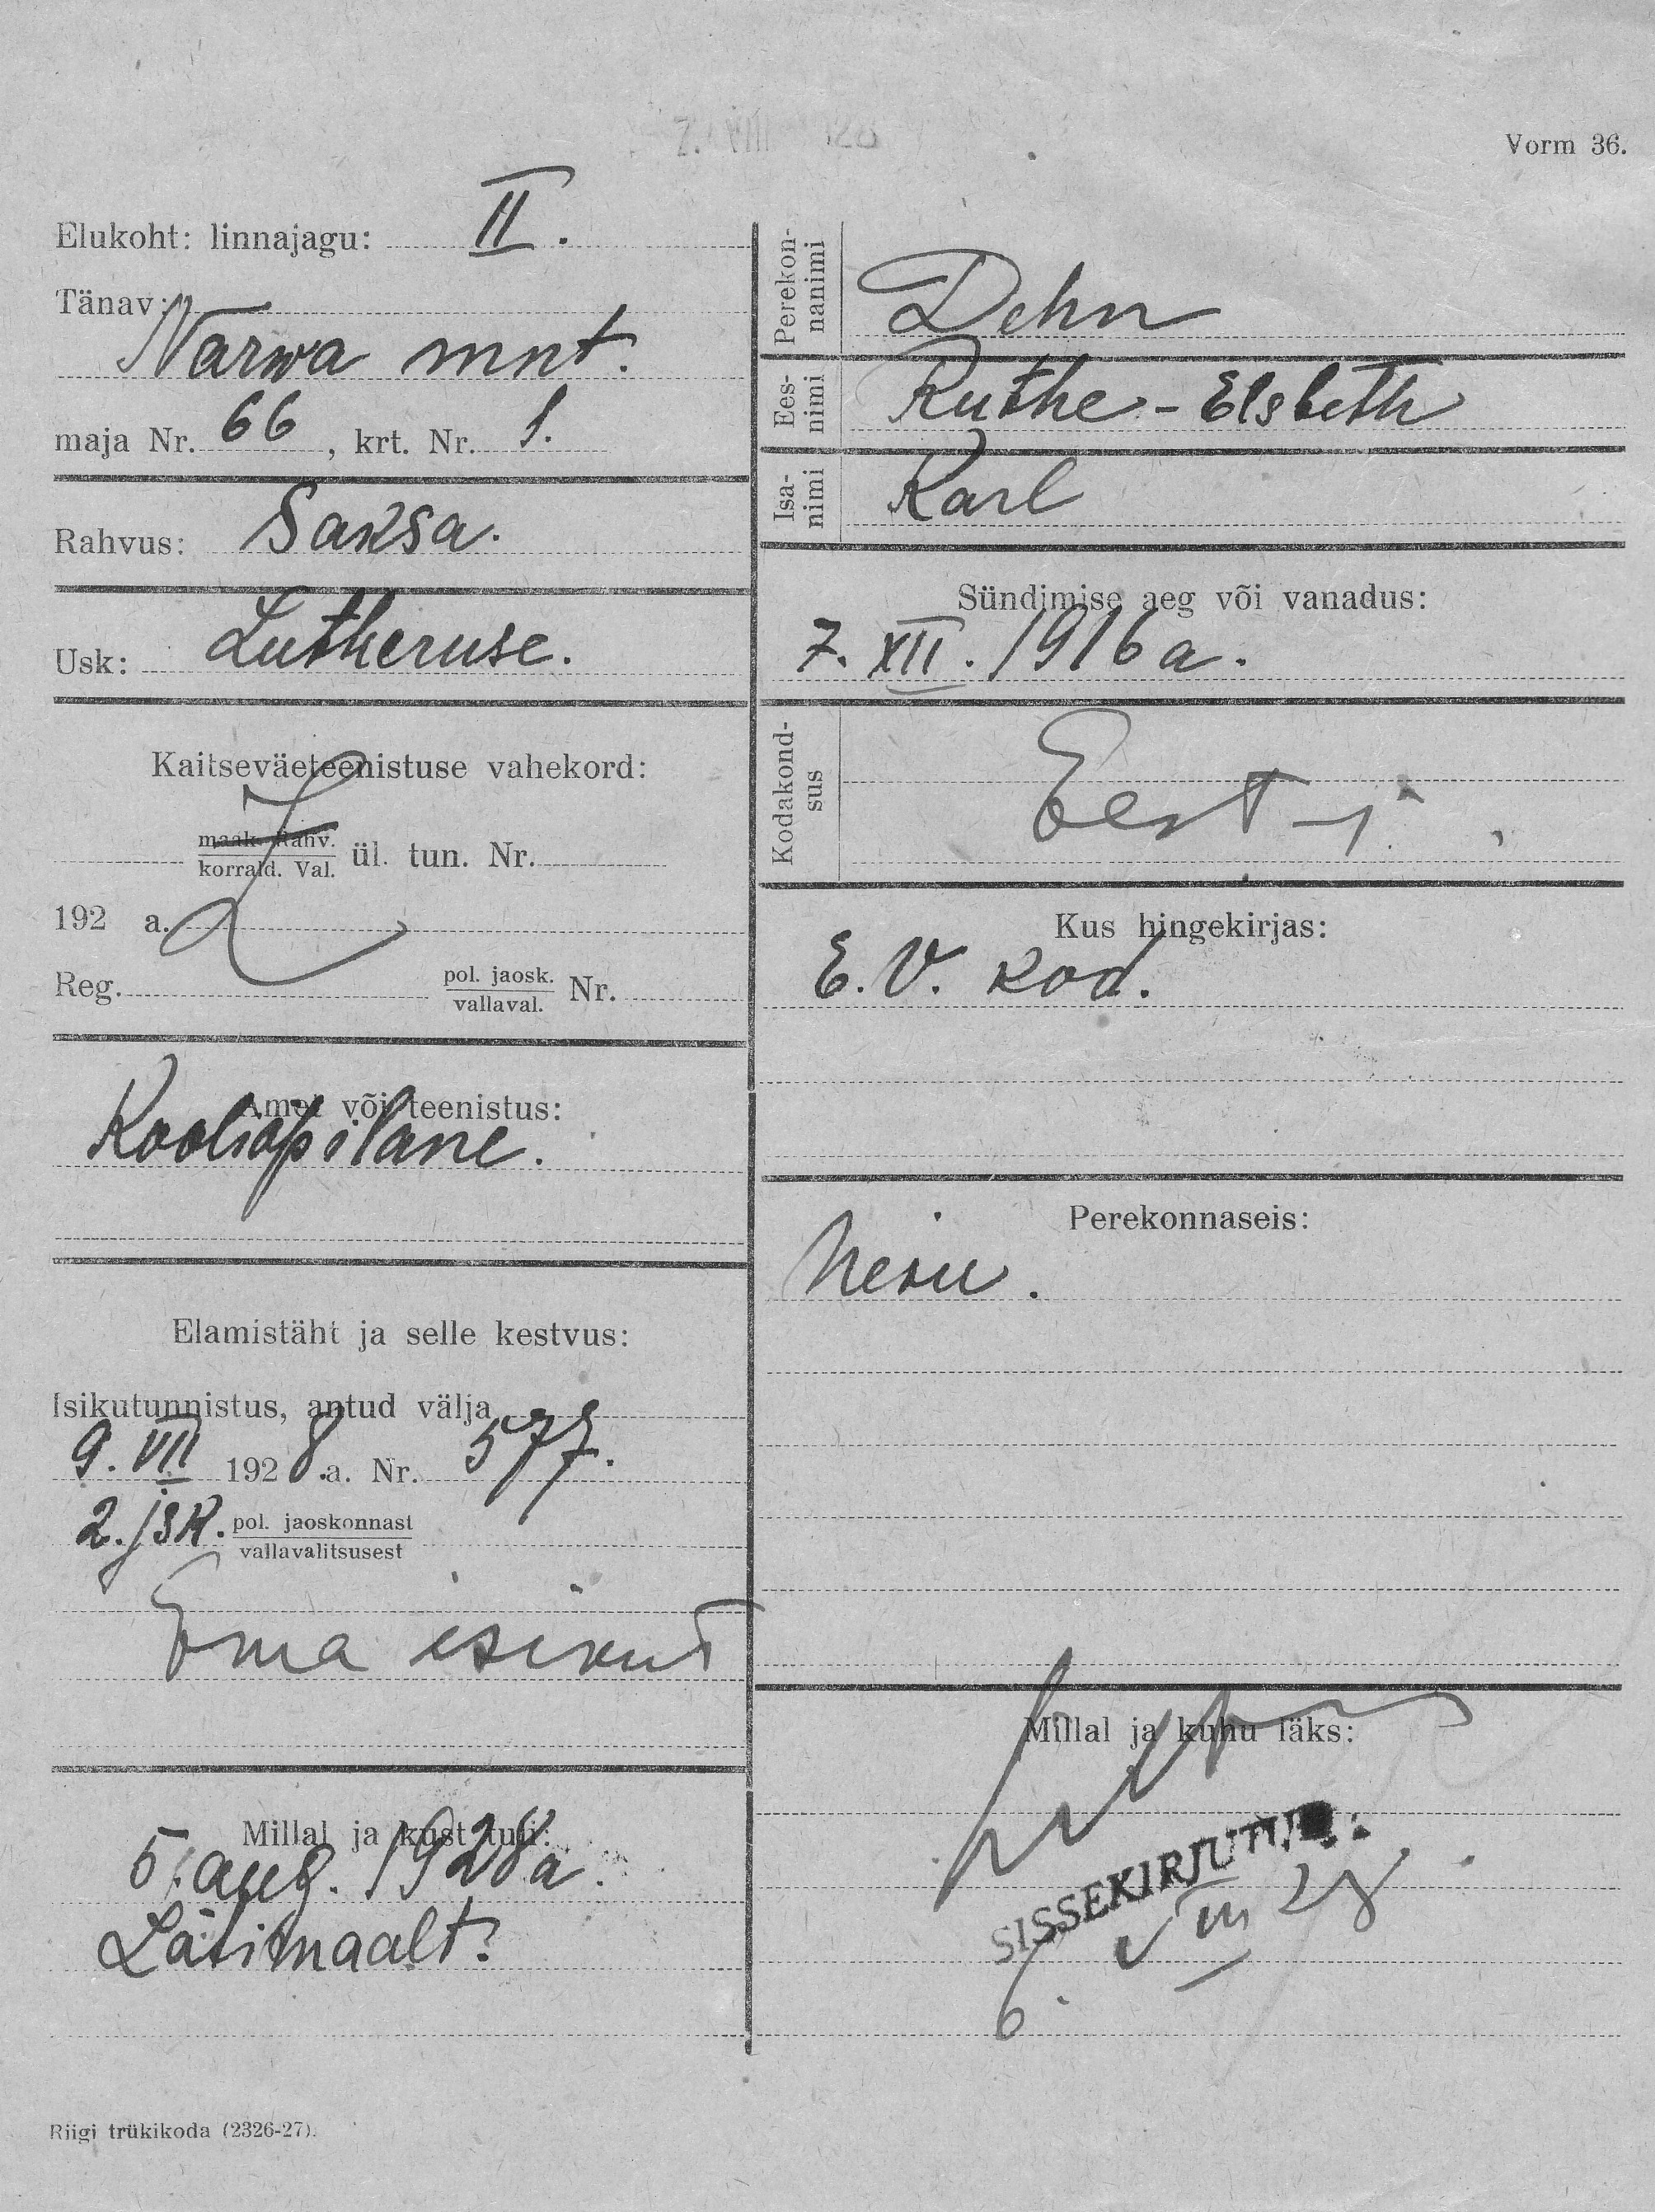 Vorm 36.
Elukoht: linnajagu: II.
Tänav:
Narwa mnt.
maja Nr. 66, krt. Nr. 1.
Rahvus: Saksa.
Usk: Lutheruse.
Kaitseväeteenistuse vahekord:
maak. Rahv.
korrald. Val. ül. tun. Nr.
192 a.
Reg. pol. jaosk. Nr.
vallaval.
Amet või teenistus:
Kooliõpilane.
Elamistäht ja selle kestvus:
Isikutunnistus, antud välja
9. VII 1928.a. Nr. 577.
2. jsk. pol. jaoskonnast
vallavalitsusest
Ema isikut
Millal ja kust tuli:
5. aug. 1928 a.
Lätimaalt.
Perekon-
nanimi
Dehn
Ees-
nimi
Ruthe-Elsbeth
Isa-
nimi
Karl
Sündimise aeg või vanadus:
7. XII. 1916 a.
Kodakond-
sus
Eesti
Kus hingekirjas:
E. V. kod.
Perekonnaseis:
Neiu.
Millal ja kuhu läks:
SISSEKIRJUTUD.
6. VIII 28
Riigi trükikoda (2326-27).